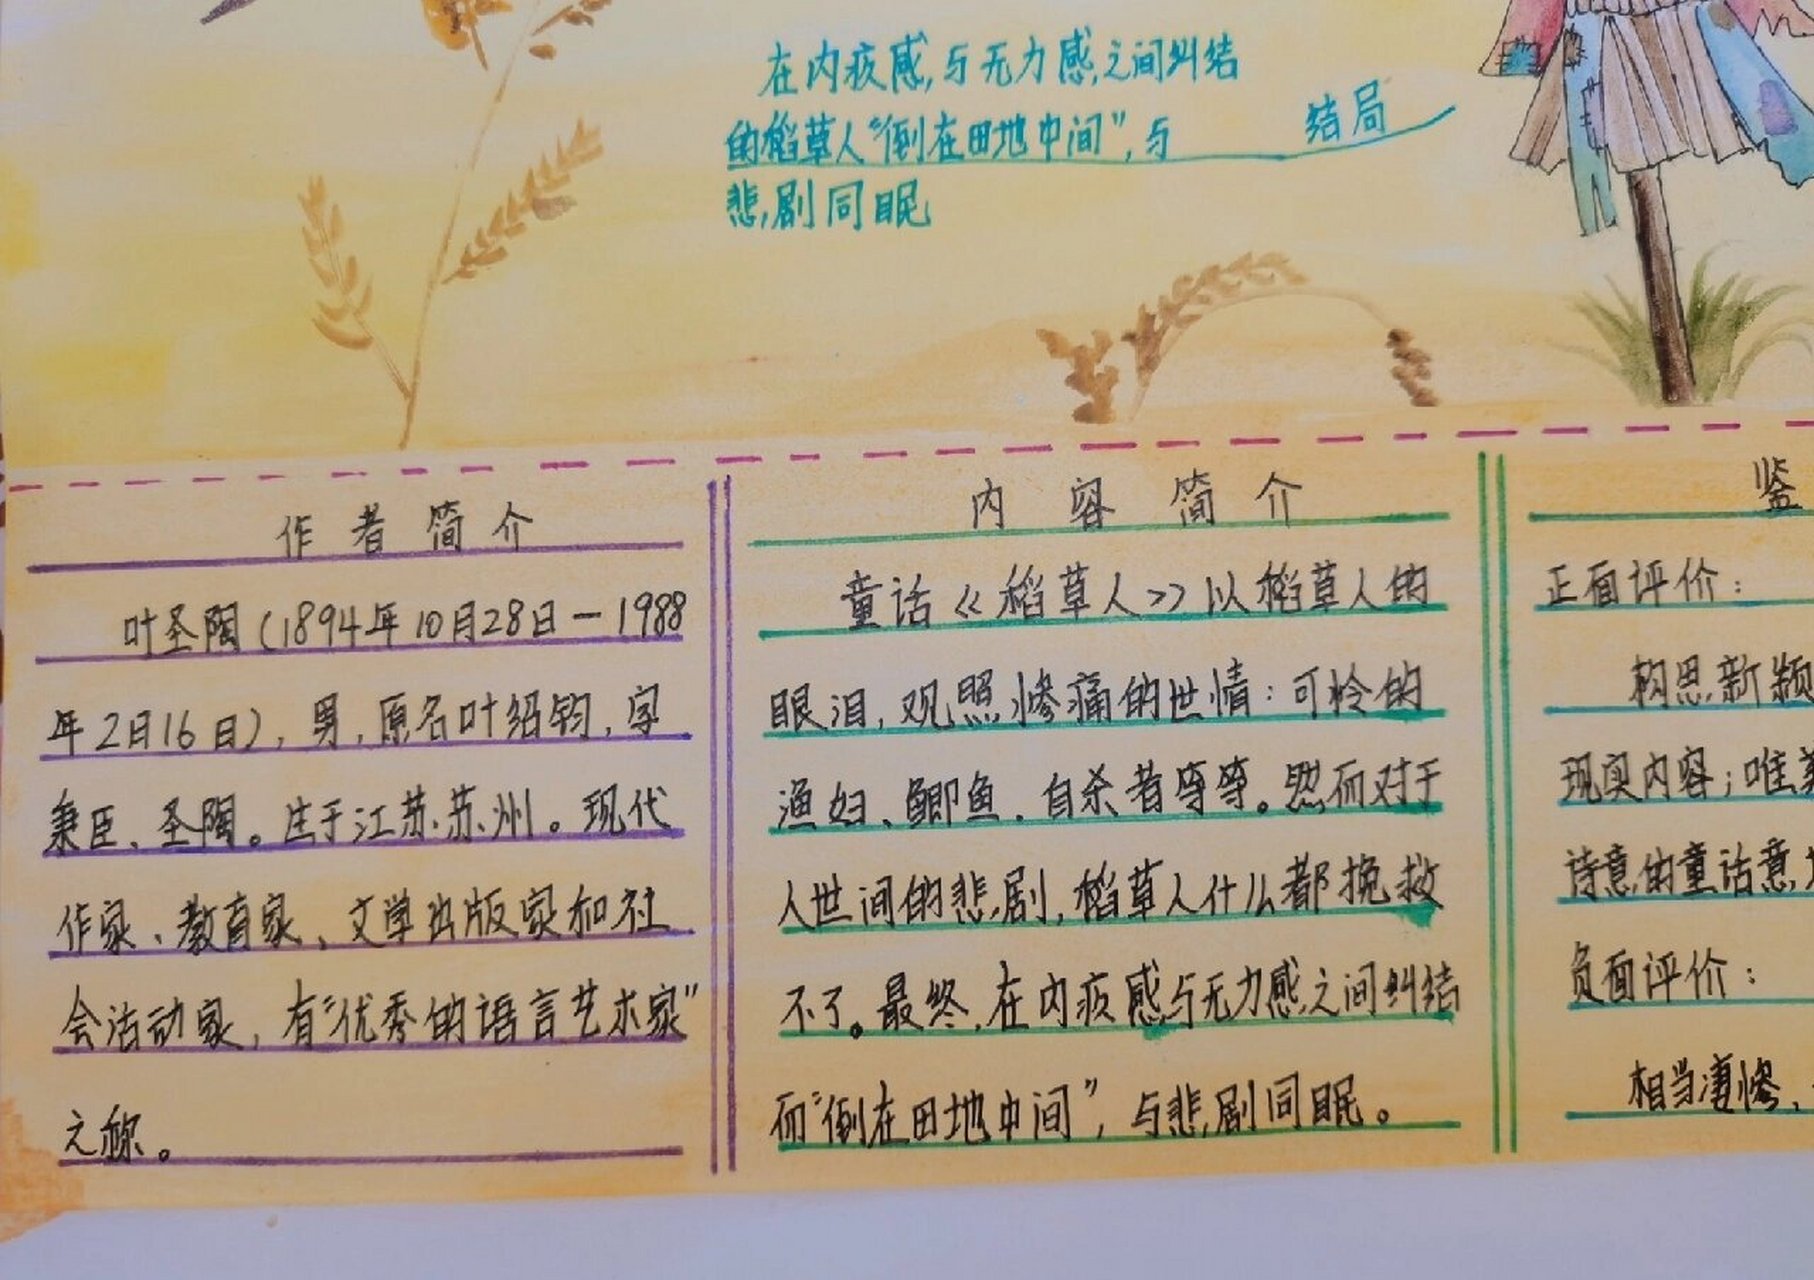 在内疚感与无力感之间纠结
的稻草人“倒在田地中间”,与
结局
悲剧同眠
作者简介
叶圣陶(1894年10月28日—1988
年2月16日),男,原名叶绍钧,字
秉臣、圣陶。生于江苏苏州。现代
作家、教育家、文学出版家和社
会活动家,有“优秀的语言艺术家”
之称。
内容简介
童话《稻草人》以稻草人的
眼泪,观照惨痛的世情:可怜的
渔妇、鲫鱼、自杀者等等。然而对于
人世间的悲剧,稻草人什么都挽救
不了。最终,在内疚感与无力感之间纠结
而“倒在田地中间”,与悲剧同眠。
鉴
正面评价:
构思新颖
现实内容;唯美
诗意的童话意
负面评价:
相当凄惨、